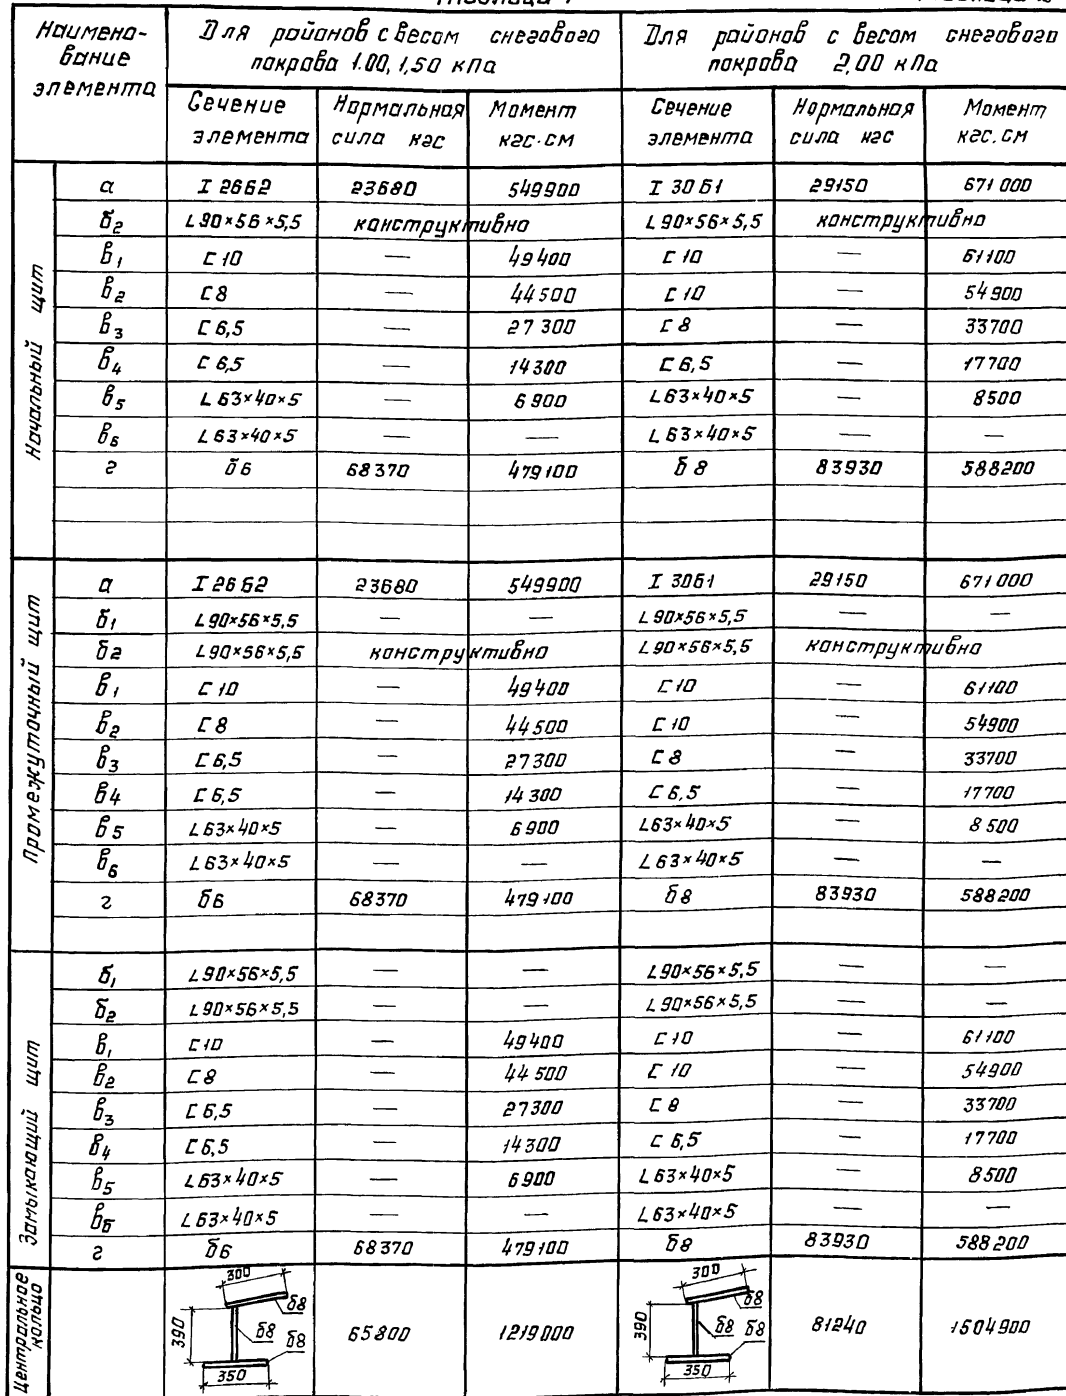 Наимено-
вание
элемента
Для районов с весом снегового
покрова 1.00, 1,50 кПа
Для районов с весом снегового
покрова 2,00 кПа
Сечение
элемента
Нормальная
сила кгс
Момент
кгс·см
Сечение
элемента
Нормальная
сила кгс
Момент
кгс.см
Начальный щит
а I 26Б2 23680 549900 I 30Б1 29150 671000
б₂ L90×56×5,5 конструктивно L90×56×5,5 конструктивно
в₁ [10 — 49400 [10 — 61100
в₂ [8 — 44500 [10 — 54900
в₃ [6,5 — 27300 [8 — 33700
в₄ [6,5 — 14300 [6,5 — 17700
в₅ L63×40×5 — 6900 L63×40×5 — 8500
в₆ L63×40×5 — — L63×40×5 — —
г δ6 68370 479100 δ8 83930 588200
Промежуточный щит
а I 26Б2 23680 549900 I 30Б1 29150 671000
б₁ L90×56×5,5 — — L90×56×5,5 — —
б₂ L90×56×5,5 конструктивно L90×56×5,5 конструктивно
в₁ [10 — 49400 [10 — 61100
в₂ [8 — 44500 [10 — 54900
в₃ [6,5 — 27300 [8 — 33700
в₄ [6,5 — 14300 [6,5 — 17700
в₅ L63×40×5 — 6900 L63×40×5 — 8500
в₆ L63×40×5 — — L63×40×5 — —
г δ6 68370 479100 δ8 83930 588200
Замыкающий щит
б₁ L90×56×5,5 — — L90×56×5,5 — —
б₂ L90×56×5,5 — — L90×56×5,5 — —
в₁ [10 — 49400 [10 — 61100
в₂ [8 — 44500 [10 — 54900
в₃ [6,5 — 27300 [8 — 33700
в₄ [6,5 — 14300 [6,5 — 17700
в₅ L63×40×5 — 6900 L63×40×5 — 8500
в₆ L63×40×5 — — L63×40×5 — —
г δ6 68370 479100 δ8 83930 588200
Центральное
кольцо
300
δ8
390
δ8
δ8
350
65800 1219000
300
δ8
390
δ8
δ8
350
81240 1504900